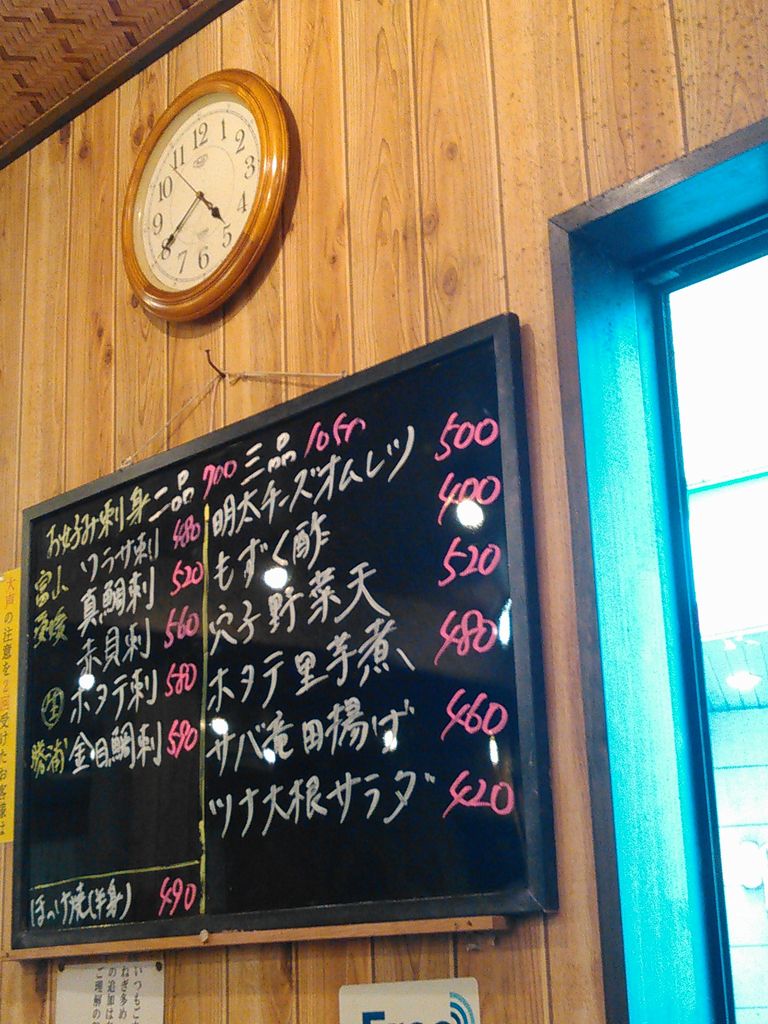 12
1
2
3
4
5
6
7
8
9
10
11
お好み刺身二品 900 三品 1050
富山 ワラサ刺 480
愛媛 真鯛刺 520
赤貝刺 560
生 ホタテ刺 580
勝浦 金目鯛刺 590
ほっけ焼(半身) 490
明太チーズオムレツ 500
もずく酢 400
穴子野菜天 520
ホタテ里芋煮 480
サバ竜田揚げ 460
ツナ大根サラダ 420
大声の注意を2回受けたお客様は
いつもご
ねぎ多め
の追加は
ご理解の